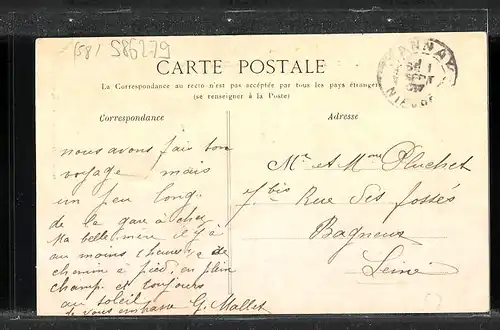 (58) 586279
CARTE POSTALE
La Correspondance au recto n'est pas acceptée par tous les pays étrangers
(se renseigner à la Poste)
Correspondance
Adresse
ANNAY
NIÈVRE
nous avons fais bon
voyage mais
un peu long.
de la gare à chez
Ma belle mère il y a
au moins 1 heure ½ de
chemin a pied, en plein
champ et toujours
au soleil
je vous embrasse G. Mallet
Mr et Mme Pluchet
7 bis Rue des fossés
Bagneux
Seine